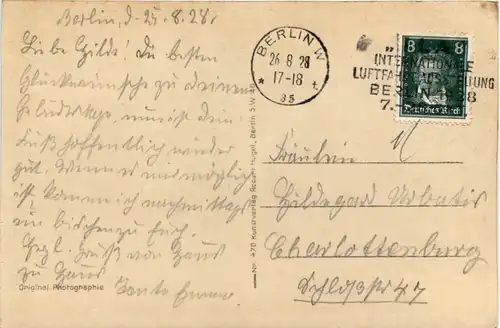 Berlin, d. 25.8.28.
Liebe Hilde! Die besten
Glückwünsche zu deinem
nun ist dein
Fuß hoffentlich wieder
gut. Wenn es uns möglich
ist kommen ich nachmittags
ein bischen zu Euch.
Hrzl. Gruß von Haus
zu Haus Tante
Original Photographie
Nr. 470 Kunstverlag Rosenthal, Berlin S.W.
BERLIN W
26.8.28
17-18
* 35 t
INTERNATIONALE
LUFTFAHRT AUSSTELLUNG
BERLIN 1928
7.
8 8
Deutsches Reich
Fräulein
Hildegard Urbatis
Charlottenburg
Schloßstr 47